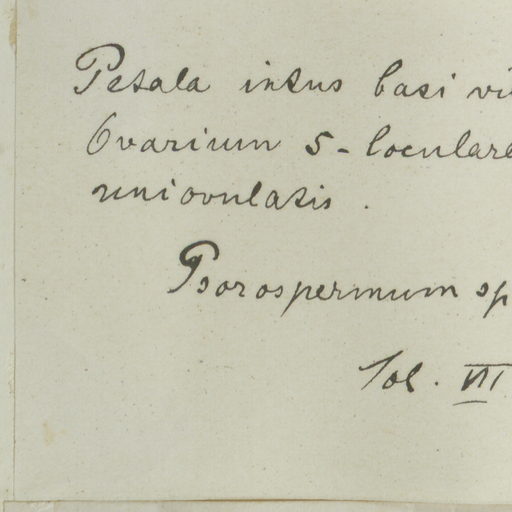 Petala intus basi vi
Ovarium 5-loculare
uniovulatis.
Psorospermum sp
VII